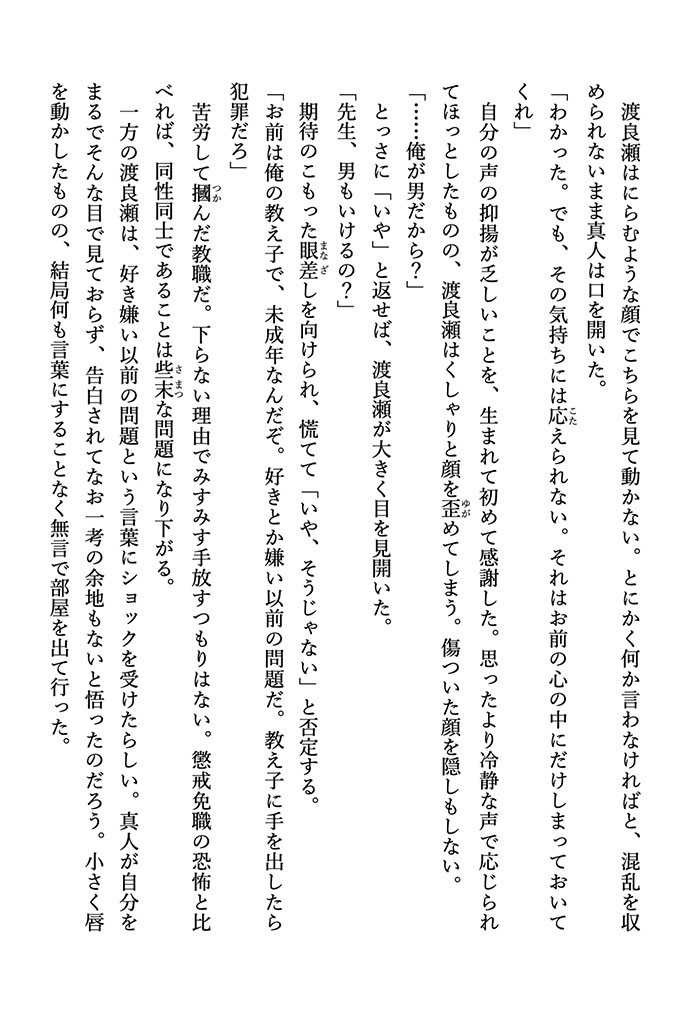 渡良瀬はにらむような顔でこちらを見て動かない。とにかく何か言わなければと、混乱を収
められないまま真人は口を開いた。
「わかった。でも、その気持ちには応えられない。それはお前の心の中にだけしまっておいて
くれ」
　自分の声の抑揚が乏しいことを、生まれて初めて感謝した。思ったより冷静な声で応じられ
てほっとしたものの、渡良瀬はくしゃりと顔を歪めてしまう。傷ついた顔を隠しもしない。
「……俺が男だから？」
　とっさに「いや」と返せば、渡良瀬が大きく目を見開いた。
「先生、男もいけるの？」
　期待のこもった眼差しを向けられ、慌てて「いや、そうじゃない」と否定する。
「お前は俺の教え子で、未成年なんだぞ。好きとか嫌い以前の問題だ。教え子に手を出したら
犯罪だろ」
　苦労して摑んだ教職だ。下らない理由でみすみす手放すつもりはない。懲戒免職の恐怖と比
べれば、同性同士であることは些末な問題になり下がる。
　一方の渡良瀬は、好き嫌い以前の問題という言葉にショックを受けたらしい。真人が自分を
まるでそんな目で見ておらず、告白されてなお一考の余地もないと悟ったのだろう。小さく唇
を動かしたものの、結局何も言葉にすることなく無言で部屋を出て行った。